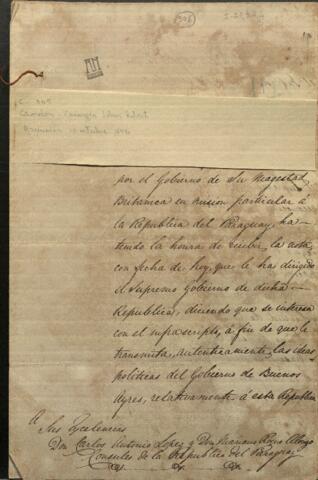 por el Gobierno de Su Magestad
Britanica en mision particular á
la Republica del Paraguay, ha
tenido la honra de recibir, la nota,
con fecha de hoy, que le ha dirigido
el Supremo Gobierno de dicha
Republica, diciendo que se interesa
con el infrascripto, á fin de que le
transmita, autenticamente, las ideas
politicas del Gobierno de Buenos
Ayres, relativamente á esta Republica
A Sus Excelencias
Don Carlos Antonio Lopez y Don Mariano Roque Alonzo
Consules de la Republica del Paraguay